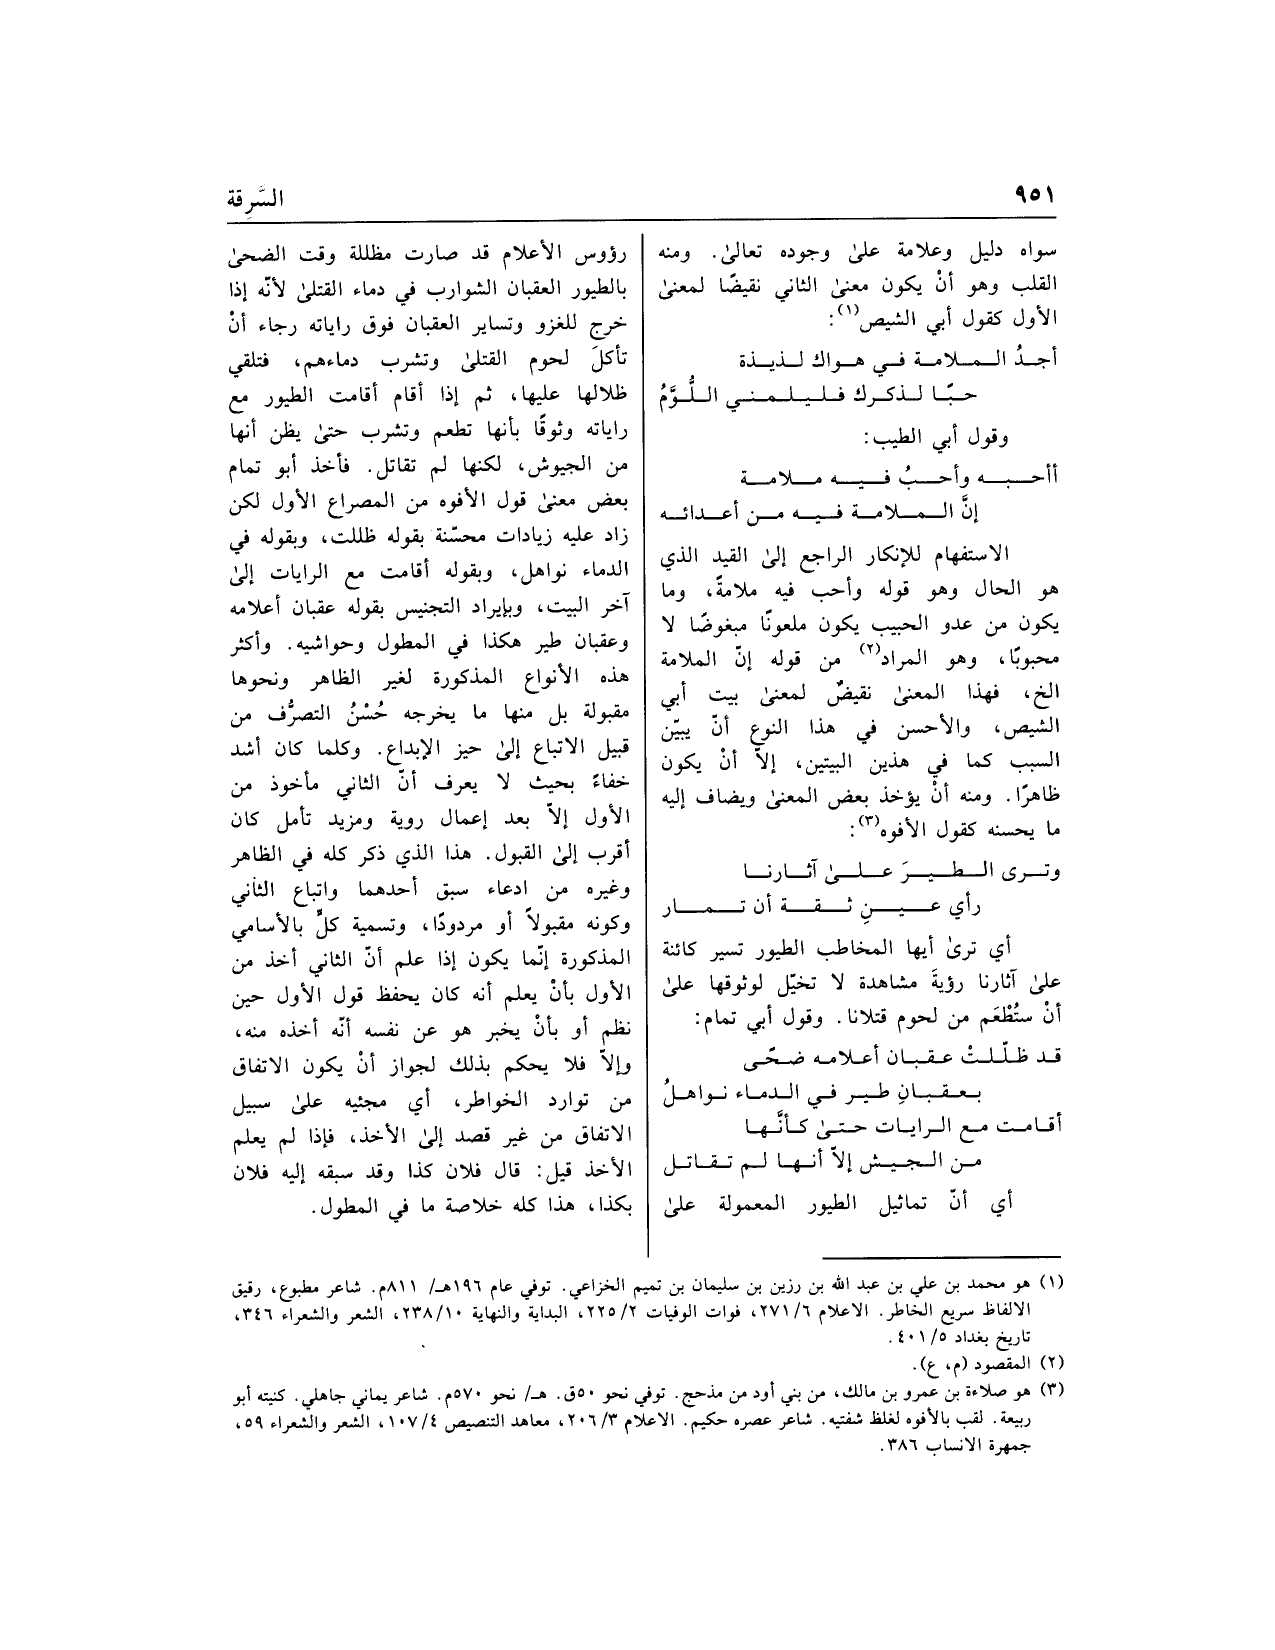 ٩٥١
السَّرِقة
سواه دليل وعلامة علىٰ وجوده تعالىٰ. ومنه
القلب وهو أنْ يكون معنىٰ الثاني نقيضًا لمعنىٰ
الأول كقول أبي الشيص(١):
أجدُ الملامة في هواك لذيذة
حبًّا لذكرك فليلمني اللُّوَّمُ
وقول أبي الطيب:
أأحبه وأحبُ فيه ملامة
إنَّ الملامة فيه من أعدائه
الاستفهام للإنكار الراجع إلىٰ القيد الذي
هو الحال وهو قوله وأحب فيه ملامةً، وما
يكون من عدو الحبيب يكون ملعونًا مبغوضًا لا
محبوبًا، وهو المراد(٢) من قوله إنّ الملامة
الخ، فهذا المعنىٰ نقيضٌ لمعنىٰ بيت أبي
الشيص، والأحسن في هذا النوع أنّ يبيّن
السبب كما في هذين البيتين، إلاّ أنْ يكون
ظاهرًا. ومنه أنْ يؤخذ بعض المعنىٰ ويضاف إليه
ما يحسنه كقول الأفوه(٣):
وترى الطيرَ علىٰ آثارنا
رأي عينِ ثقة أن تمار
أي ترىٰ أيها المخاطب الطيور تسير كائنة
علىٰ آثارنا رؤيةَ مشاهدة لا تخيّل لوثوقها علىٰ
أنْ ستُطْعَم من لحوم قتلانا. وقول أبي تمام:
قد ظلّلتْ عقبان أعلامه ضحًى
بعقبانِ طير في الدماء نواهلُ
أقامت مع الرايات حتىٰ كأنَّها
من الجيش إلاّ أنها لم تقاتل
أي أنّ تماثيل الطيور المعمولة علىٰ
رؤوس الأعلام قد صارت مظللة وقت الضحىٰ
بالطيور العقبان الشوارب في دماء القتلىٰ لأنّه إذا
خرج للغزو وتساير العقبان فوق راياته رجاء أنْ
تأكلَ لحوم القتلىٰ وتشرب دماءهم، فتلقي
ظلالها عليها، ثم إذا أقام أقامت الطيور مع
راياته وثوقًا بأنها تطعم وتشرب حتىٰ يظن أنها
من الجيوش، لكنها لم تقاتل. فأخذ أبو تمام
بعض معنىٰ قول الأفوه من المصراع الأول لكن
زاد عليه زيادات محسّنة بقوله ظللت، وبقوله في
الدماء نواهل، وبقوله أقامت مع الرايات إلىٰ
آخر البيت، وبإيراد التجنيس بقوله عقبان أعلامه
وعقبان طير هكذا في المطول وحواشيه. وأكثر
هذه الأنواع المذكورة لغير الظاهر ونحوها
مقبولة بل منها ما يخرجه حُسْنُ التصرُّف من
قبيل الاتباع إلىٰ حيز الإبداع. وكلما كان أشد
خفاءً بحيث لا يعرف أنّ الثاني مأخوذ من
الأول إلاّ بعد إعمال روية ومزيد تأمل كان
أقرب إلىٰ القبول. هذا الذي ذكر كله في الظاهر
وغيره من ادعاء سبق أحدهما واتباع الثاني
وكونه مقبولاً أو مردودًا، وتسمية كلٍّ بالأسامي
المذكورة إنّما يكون إذا علم أنّ الثاني أخذ من
الأول بأنْ يعلم أنه كان يحفظ قول الأول حين
نظم أو بأنْ يخبر هو عن نفسه أنّه أخذه منه،
وإلاّ فلا يحكم بذلك لجواز أنْ يكون الاتفاق
من توارد الخواطر، أي مجئيه علىٰ سبيل
الاتفاق من غير قصد إلىٰ الأخذ، فإذا لم يعلم
الأخذ قيل: قال فلان كذا وقد سبقه إليه فلان
بكذا، هذا كله خلاصة ما في المطول.
(١) هو محمد بن علي بن عبد الله بن رزين بن سليمان بن تميم الخزاعي. توفي عام ١٩٦هـ/ ٨١١م. شاعر مطبوع، رقيق
الالفاظ سريع الخاطر. الاعلام ٢٧١/٦، فوات الوفيات ٢٢٥/٢، البداية والنهاية ٢٣٨/١٠، الشعر والشعراء ٣٤٦،
تاريخ بغداد ٤٠١/٥.
(٢) المقصود (م، ع).
(٣) هو صلاءة بن عمرو بن مالك، من بني أود من مذحج. توفي نحو ٥٠ق. هـ/ نحو ٥٧٠م. شاعر يماني جاهلي. كنيته أبو
ربيعة. لقب بالأفوه لغلظ شفتيه. شاعر عصره حكيم. الاعلام ٢٠٦/٣، معاهد التنصيص ١٠٧/٤، الشعر والشعراء ٥٩،
جمهرة الانساب ٣٨٦.